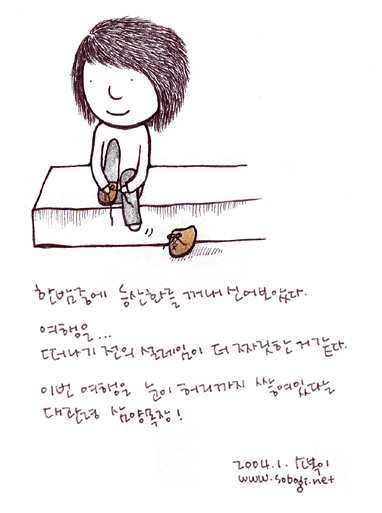 한밤중에 등산화를 꺼내 신어보았다.
여행을...
떠나기 전의 설레임이 더 짜릿한 거 같다.
이번 여행은 눈이 허리까지 쌓여있다는
대관령 삼양목장!
2004.1. 소복이
www.sobogi.net